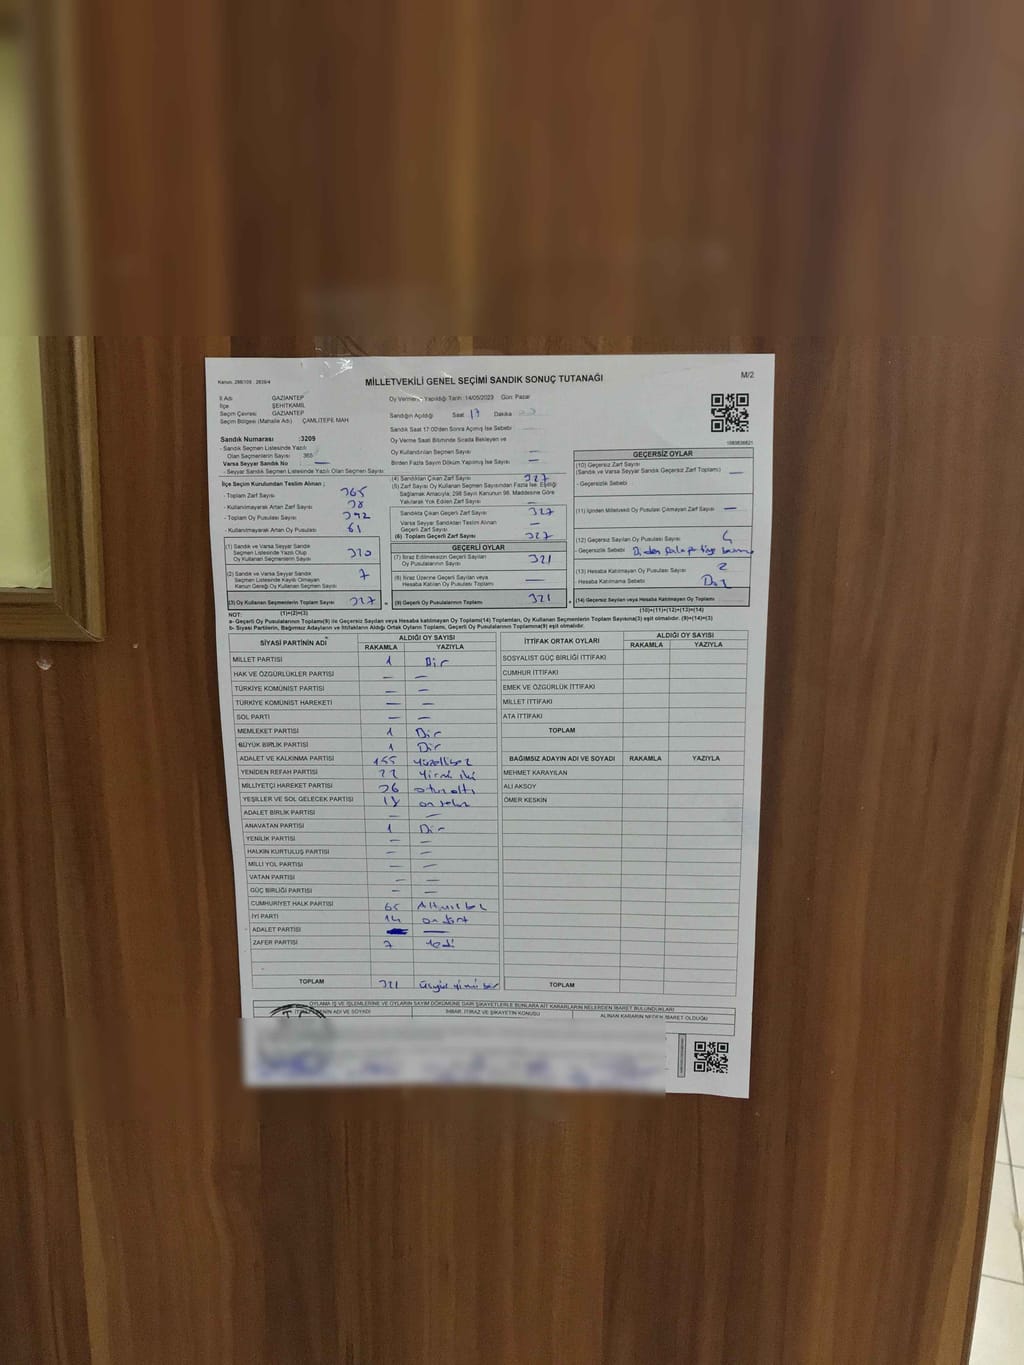 Kanun: 298/105 - 2839/4
MİLLETVEKİLİ GENEL SEÇİMİ SANDIK SONUÇ TUTANAĞI
M/2
İl Adı GAZİANTEP
İlçe ŞEHİTKAMİL
Seçim Çevresi GAZİANTEP
Seçim Bölgesi (Mahalle Adı) ÇAMLITEPE MAH
Sandık Numarası :3209
- Sandık Seçmen Listesinde Yazılı
Olan Seçmenlerin Sayısı 365
Varsa Seyyar Sandık No —
- Seyyar Sandık Seçmen Listesinde Yazılı Olan Seçmen Sayısı
Oy Vermenin Yapıldığı Tarih :14/05/2023 Gün: Pazar
Sandığın Açıldığı Saat 17 Dakika
Sandık Saat 17:00'den Sonra Açımış İse Sebebi
Oy Verme Saati Bitiminde Sırada Bekleyen ve
Oy Kullandırılan Seçmen Sayısı —
Birden Fazla Sayım Döküm Yapılmış İse Sayısı —
İlçe Seçim Kurulundan Teslim Alınan ;
- Toplam Zarf Sayısı 365
- Kullanılmayarak Artan Zarf Sayısı 38
- Toplam Oy Pusulası Sayısı 392
- Kullanılmayarak Artan Oy Pusulası 61
(1) Sandık ve Varsa Seyyar Sandık
Seçmen Listesinde Yazılı Olup
Oy Kullanan Seçmenlerin Sayısı 320
(2) Sandık ve Varsa Seyyar Sandık
Seçmen Listesinde Kayıtlı Olmayan
Kanun Gereği Oy Kullanan Seçmen Sayısı 7
(3) Oy Kullanan Seçmenlerin Toplam Sayısı 327
(1)+(2)=(3)
(4) Sandıktan Çıkan Zarf Sayısı 327
(5) Zarf Sayısı Oy Kullanan Seçmen Sayısından Fazla İse, Eşitliği
Sağlamak Amacıyla, 298 Sayılı Kanunun 98. Maddesine Göre
Yakılarak Yok Edilen Zarf Sayısı —
Sandıkta Çıkan Geçerli Zarf Sayısı 327
Varsa Seyyar Sandıktan Teslim Alınan
Geçerli Zarf Sayısı —
(6) Toplam Geçerli Zarf Sayısı 327
GEÇERLİ OYLAR
(7) İtiraz Edilmeksizin Geçerli Sayılan
Oy Pusulasının Sayısı 321
(8) İtiraz Üzerine Geçerli Sayılan veya
Hesaba Katılan Oy Pusulası Toplamı —
(9) Geçerli Oy Pusulalarının Toplamı 321
1083838821
GEÇERSİZ OYLAR
(10) Geçersiz Zarf Sayısı
(Sandık ve Varsa Seyyar Sandık Geçersiz Zarf Toplamı) —
- Geçersizlik Sebebi
(11) İçinden Milletvekili Oy Pusulası Çıkmayan Zarf Sayısı —
(12) Geçersiz Sayılan Oy Pusulası Sayısı 4
- Geçersizlik Sebebi
(13) Hesaba Katılmayan Oy Pusulası Sayısı 2
- Hesaba Katılmama Sebebi Boş
(14) Geçersiz Sayılan veya Hesaba Katılmayan Oy Toplamı
(10)+(11)+(12)+(13)=(14)
NOT:
a- Geçerli Oy Pusulalarının Toplamı(9) ile Geçersiz Sayılan veya Hesaba katılmayan Oy Toplamı(14) Toplamları, Oy Kullanan Seçmenlerin Toplam Sayısına(3) eşit olmalıdır. (9)+(14)=(3)
b- Siyasi Partilerin, Bağımsız Adayların ve İttifakların Aldığı Ortak Oyların Toplamı, Geçerli Oy Pusulalarının Toplamına(9) eşit olmalıdır.
SİYASİ PARTİNİN ADI ALDIĞI OY SAYISI
RAKAMLA YAZIYLA
MİLLET PARTİSİ 1 Bir
HAK VE ÖZGÜRLÜKLER PARTİSİ — —
TÜRKİYE KOMÜNİST PARTİSİ — —
TÜRKİYE KOMÜNİST HAREKETİ — —
SOL PARTİ — —
MEMLEKET PARTİSİ 1 Bir
BÜYÜK BİRLİK PARTİSİ 1 Bir
ADALET VE KALKINMA PARTİSİ 155 yüzellibeş
YENİDEN REFAH PARTİSİ 22 Yirmi iki
MİLLİYETÇİ HAREKET PARTİSİ 36 otuz altı
YEŞİLLER VE SOL GELECEK PARTİSİ 18 on sekiz
ADALET BİRLİK PARTİSİ — —
ANAVATAN PARTİSİ 1 Bir
YENİLİK PARTİSİ — —
HALKIN KURTULUŞ PARTİSİ — —
MİLLİ YOL PARTİSİ — —
VATAN PARTİSİ — —
GÜÇ BİRLİĞİ PARTİSİ — —
CUMHURİYET HALK PARTİSİ 65 Altmış beş
İYİ PARTİ 14 on dört
ADALET PARTİSİ —
ZAFER PARTİSİ 7 Yedi
TOPLAM 321 üçyüz yirmi bir
İTTİFAK ORTAK OYLARI ALDIĞI OY SAYISI
RAKAMLA YAZIYLA
SOSYALİST GÜÇ BİRLİĞİ İTTİFAKI
CUMHUR İTTİFAKI
EMEK VE ÖZGÜRLÜK İTTİFAKI
MİLLET İTTİFAKI
ATA İTTİFAKI
TOPLAM
BAĞIMSIZ ADAYIN ADI VE SOYADI RAKAMLA YAZIYLA
MEHMET KARAYILAN
ALİ AKSOY
ÖMER KESKİN
TOPLAM
OYLAMA İŞ VE İŞLEMLERİNE VE OYLARIN SAYIM DÖKÜMÜNE DAİR ŞİKAYETLERLE BUNLARA AİT KARARLARIN NELERDEN İBARET BULUNDUKLARI
ADI VE SOYADI İHBAR, İTİRAZ VE ŞİKAYETİN KONUSU ALINAN KARARIN NEDEN İBARET OLDUĞU